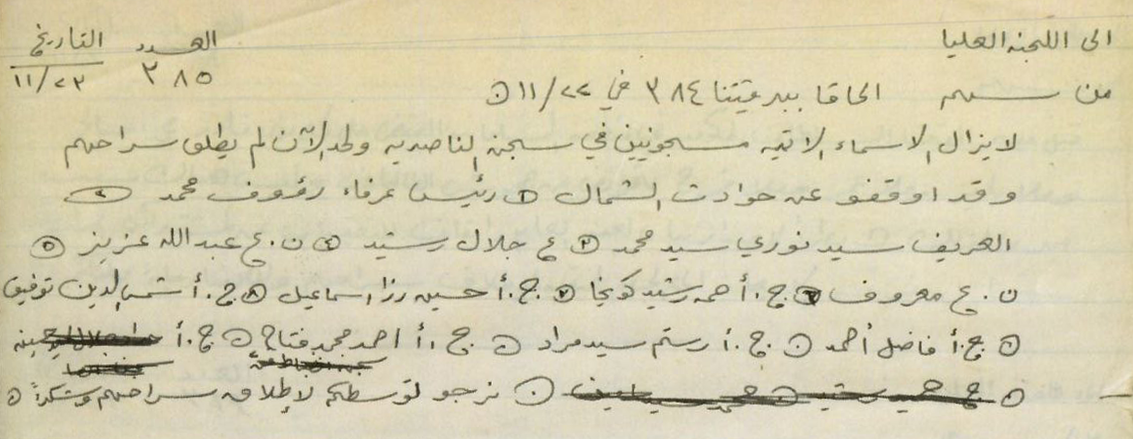 الى اللجنه العليا العدد التاريخ
٣٨٥ ١١/٢٣
من الحاقا ببرقيتنا ٣٨٤ في ١١/٢٢
لا يزال الاسماء الاتيه مسجونين في سجن الناصريه ولحد الآن لم يطلق سراحهم
وقد اوقفو عن حوادث الشمال ١ رئيس عرفاء رؤوف محمد ٢
العريف سيد نوري سيد محمد ٣ ع جلال رشيد ٤ ن.ع عبدالله عزيز ٥
ن.ع معروف ٦ ج.أ حمه رشيد ٧ ج.أ حسين رزا اسماعيل ٨ ج.أ شمس الدين توفيق
ج.أ فاضل أحمد ج.أ رستم سيد مراد ج.أ احمد محمد فتاح ج.أ
نرجو توسطكم لإطلاق سراحهم وشكراً